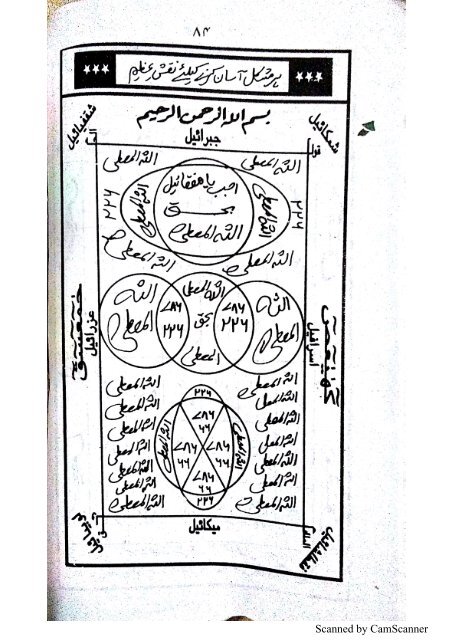 ۸۴
ہر مشکل آسان کرنے کیلئے نقش عظیم
بسم اللہ الرحمن الرحیم
جبرائیل
اللہ المعطی
اللہ المعطی
۲۲۶
اللہ المعطی
اجب یا ھفقائیل
بحق
اللہ المعطی
اللہ المعطی
۲۲۶
اللہ المعطی
اللہ المعطی
عزرائیل
حمعسق
اللہ
المعطی
۷۸۶
۲۲۶
اللہ المعطی
بحق
المعطی
۷۸۶
۲۲۶
اللہ
المعطی
اسرافیل
کھیعص
اللہ المعطی
اللہ المعطی
اللہ المعطی
اللہ المعطی
اللہ المعطی
اللہ المعطی
اللہ المعطی
۲۲۶
۷۸۶
۶۶
۷۸۶
۶۶
۷۸۶
۶۶
۷۸۶
۶۶
۲۲۶
اللہ المعطی
اللہ المعطی
اللہ المعطی
اللہ المعطی
اللہ المعطی
اللہ المعطی
اللہ المعطی
اللہ المعطی
اللہ المعطی
میکائیل
Scanned by CamScanner